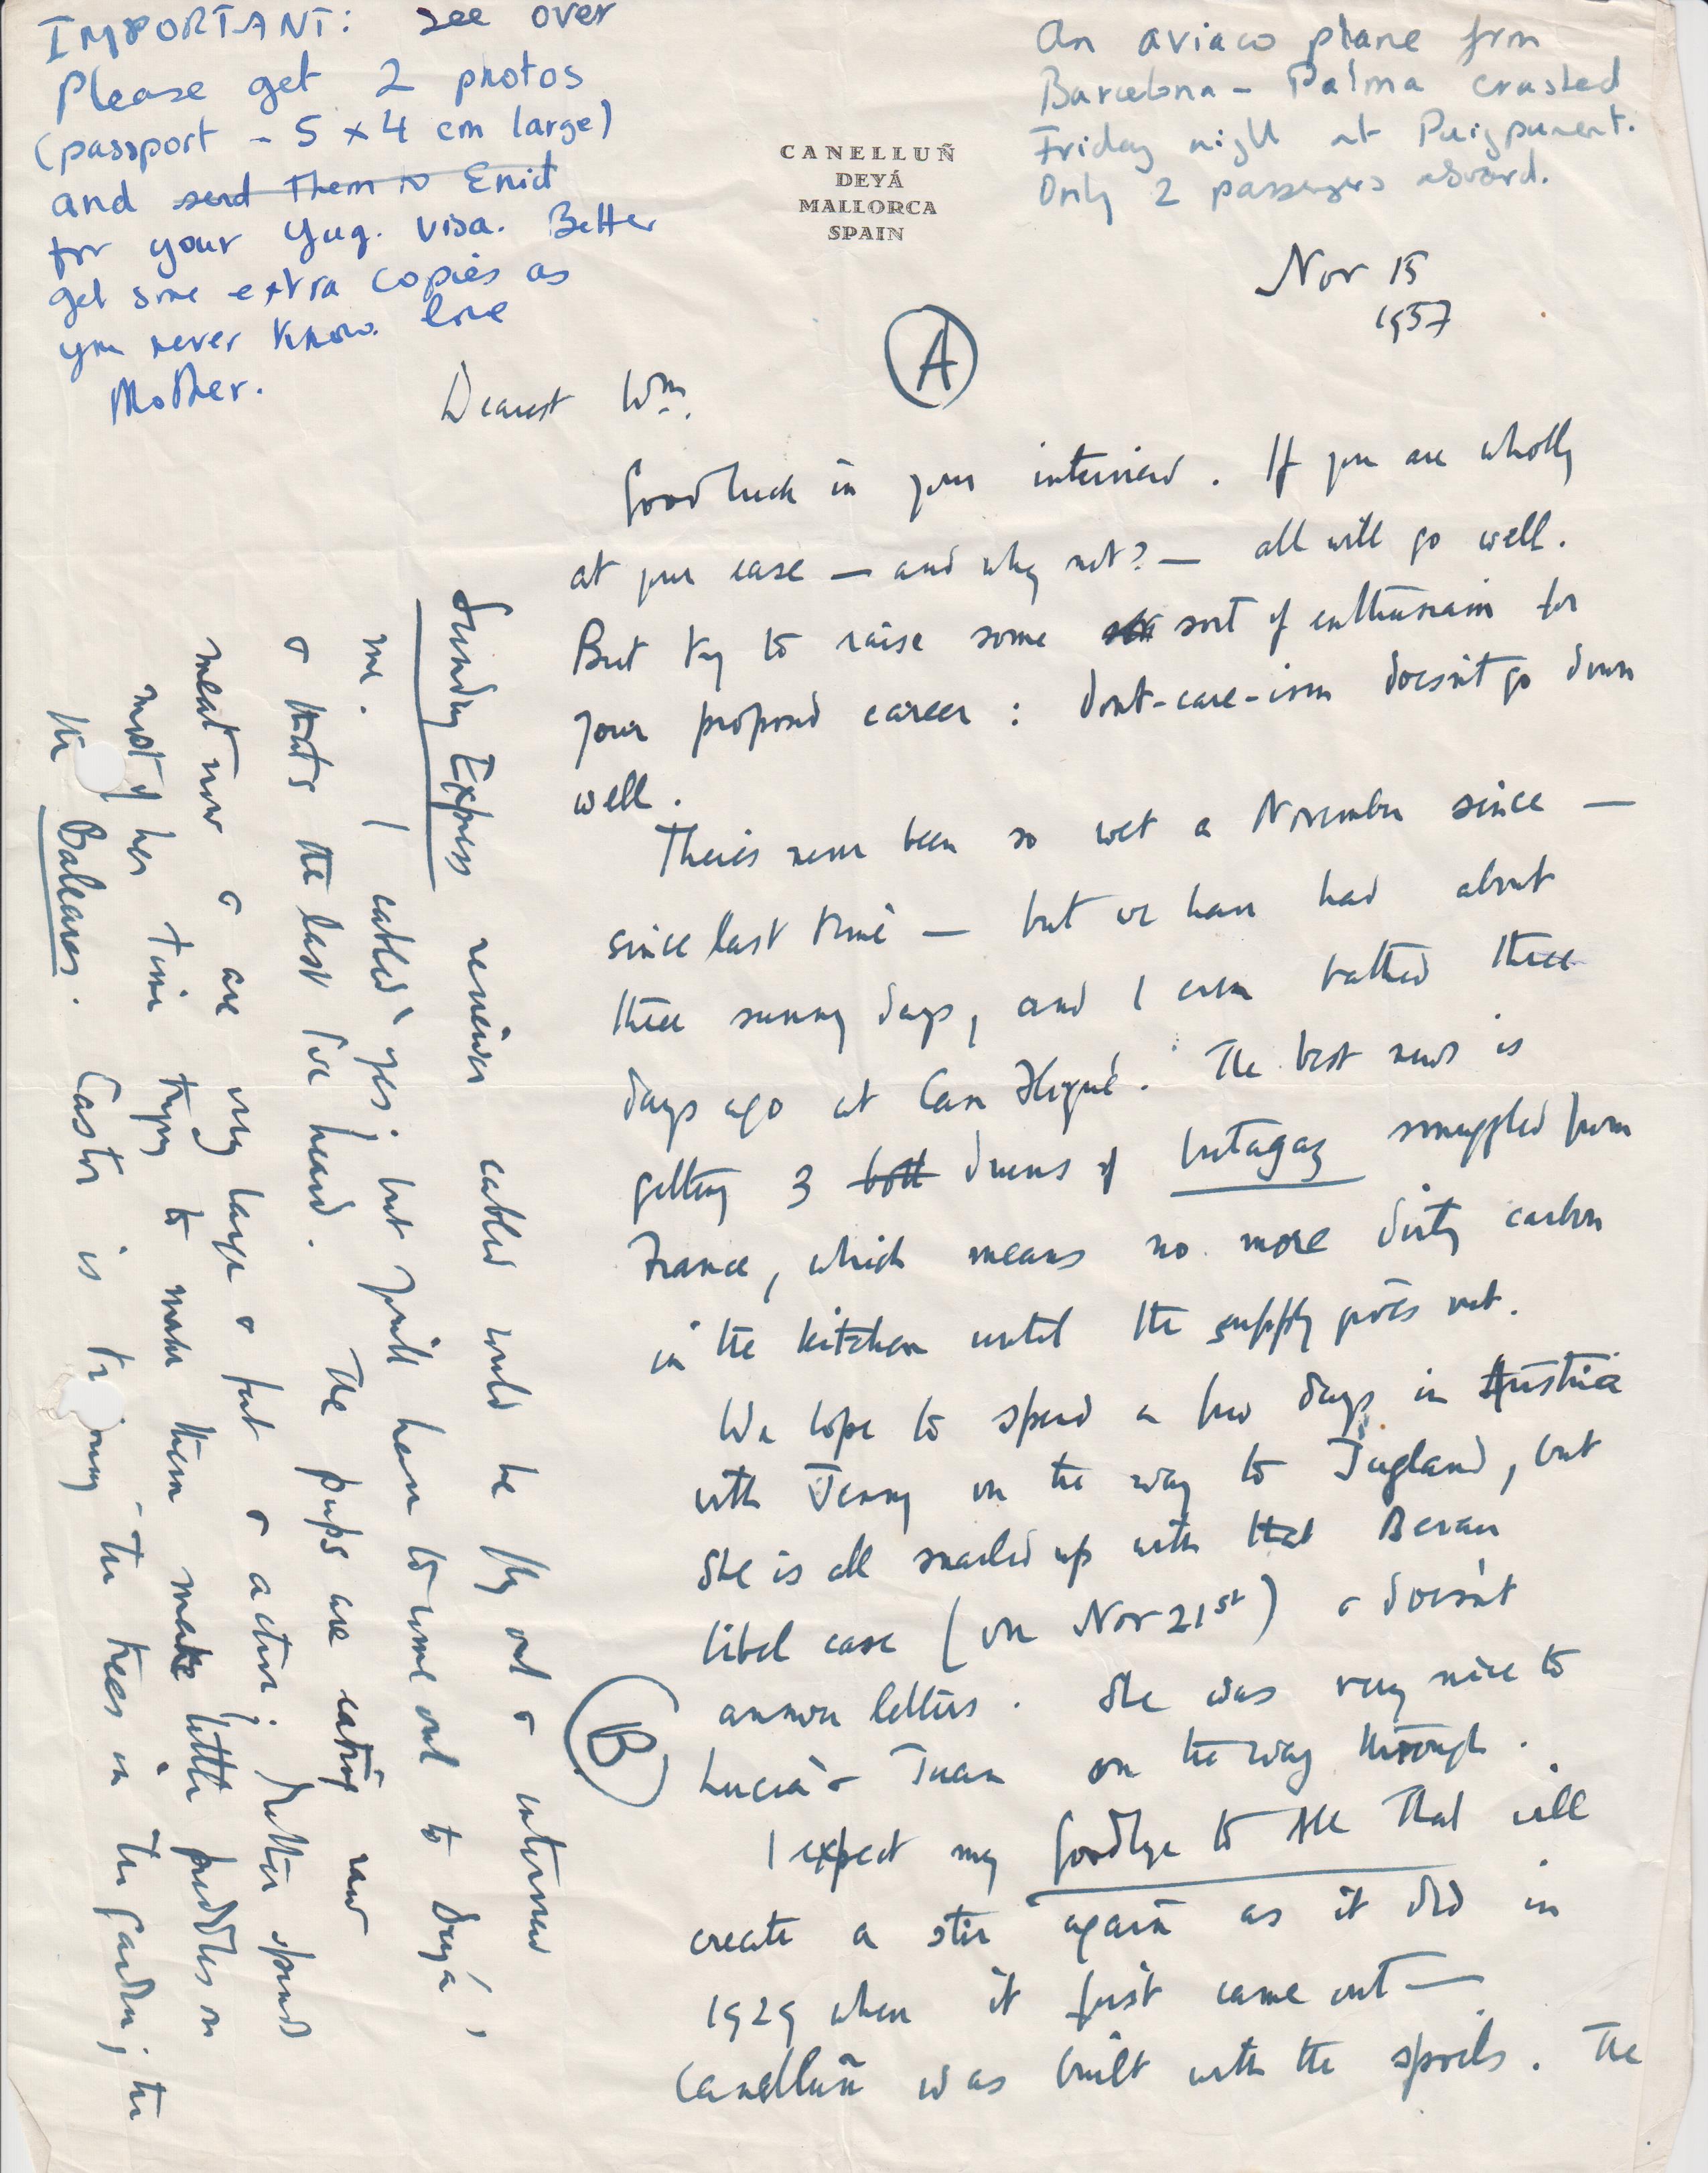 IMPORTANT: see over
Please get 2 photos
(passport - 5 x 4 cm large)
and send them to Enid
for your Yug. visa. Better
get some extra copies as
you never know. love
Mother.
An aviaco plane from
Barcelona - Palma crashed
Friday night at Puigpunent.
Only 2 passengers aboard.
CANELLUÑ
DEYÁ
MALLORCA
SPAIN
Nov 15
1957
A
Dearest Wm.
Good luck in your interview. If you are wholly
at your ease — and why not? — all will go well.
But try to raise some sort of enthusiasm for
your proposed career : dont-care-ism doesn't go down
well.
There's never been so wet a November since —
since last time — but we have had about
three sunny days, and I even bathed three
days ago at Can Floque. The best news is
getting 3 bott drums of butagaz smuggled from
France, which means no more dirty carbon
in the kitchen until the supply gives out.
We hope to spend a few days in Austria
with Jenny on the way to Jugland, but
she is all snarled up with that Bevan
libel case (on Nov 21st) & doesn't
answer letters. She was very nice to
Lucia & Juan on the way through.
I expect my Goodbye to All That will
create a stir again as it did in
1929 when it first came out —
Canelluñ was built with the spoils. The
B
Sunday Express reviewer cabled could he fly out & interview
me. I cabled 'yes; but you'll have to come out to Deyá',
& that's the last I've heard. The pups are eating raw
meat now & are very large & fat & active; spend
most of her time trying to make them make little puddles on
the Baleares. Castor is - the trees in the garden; the